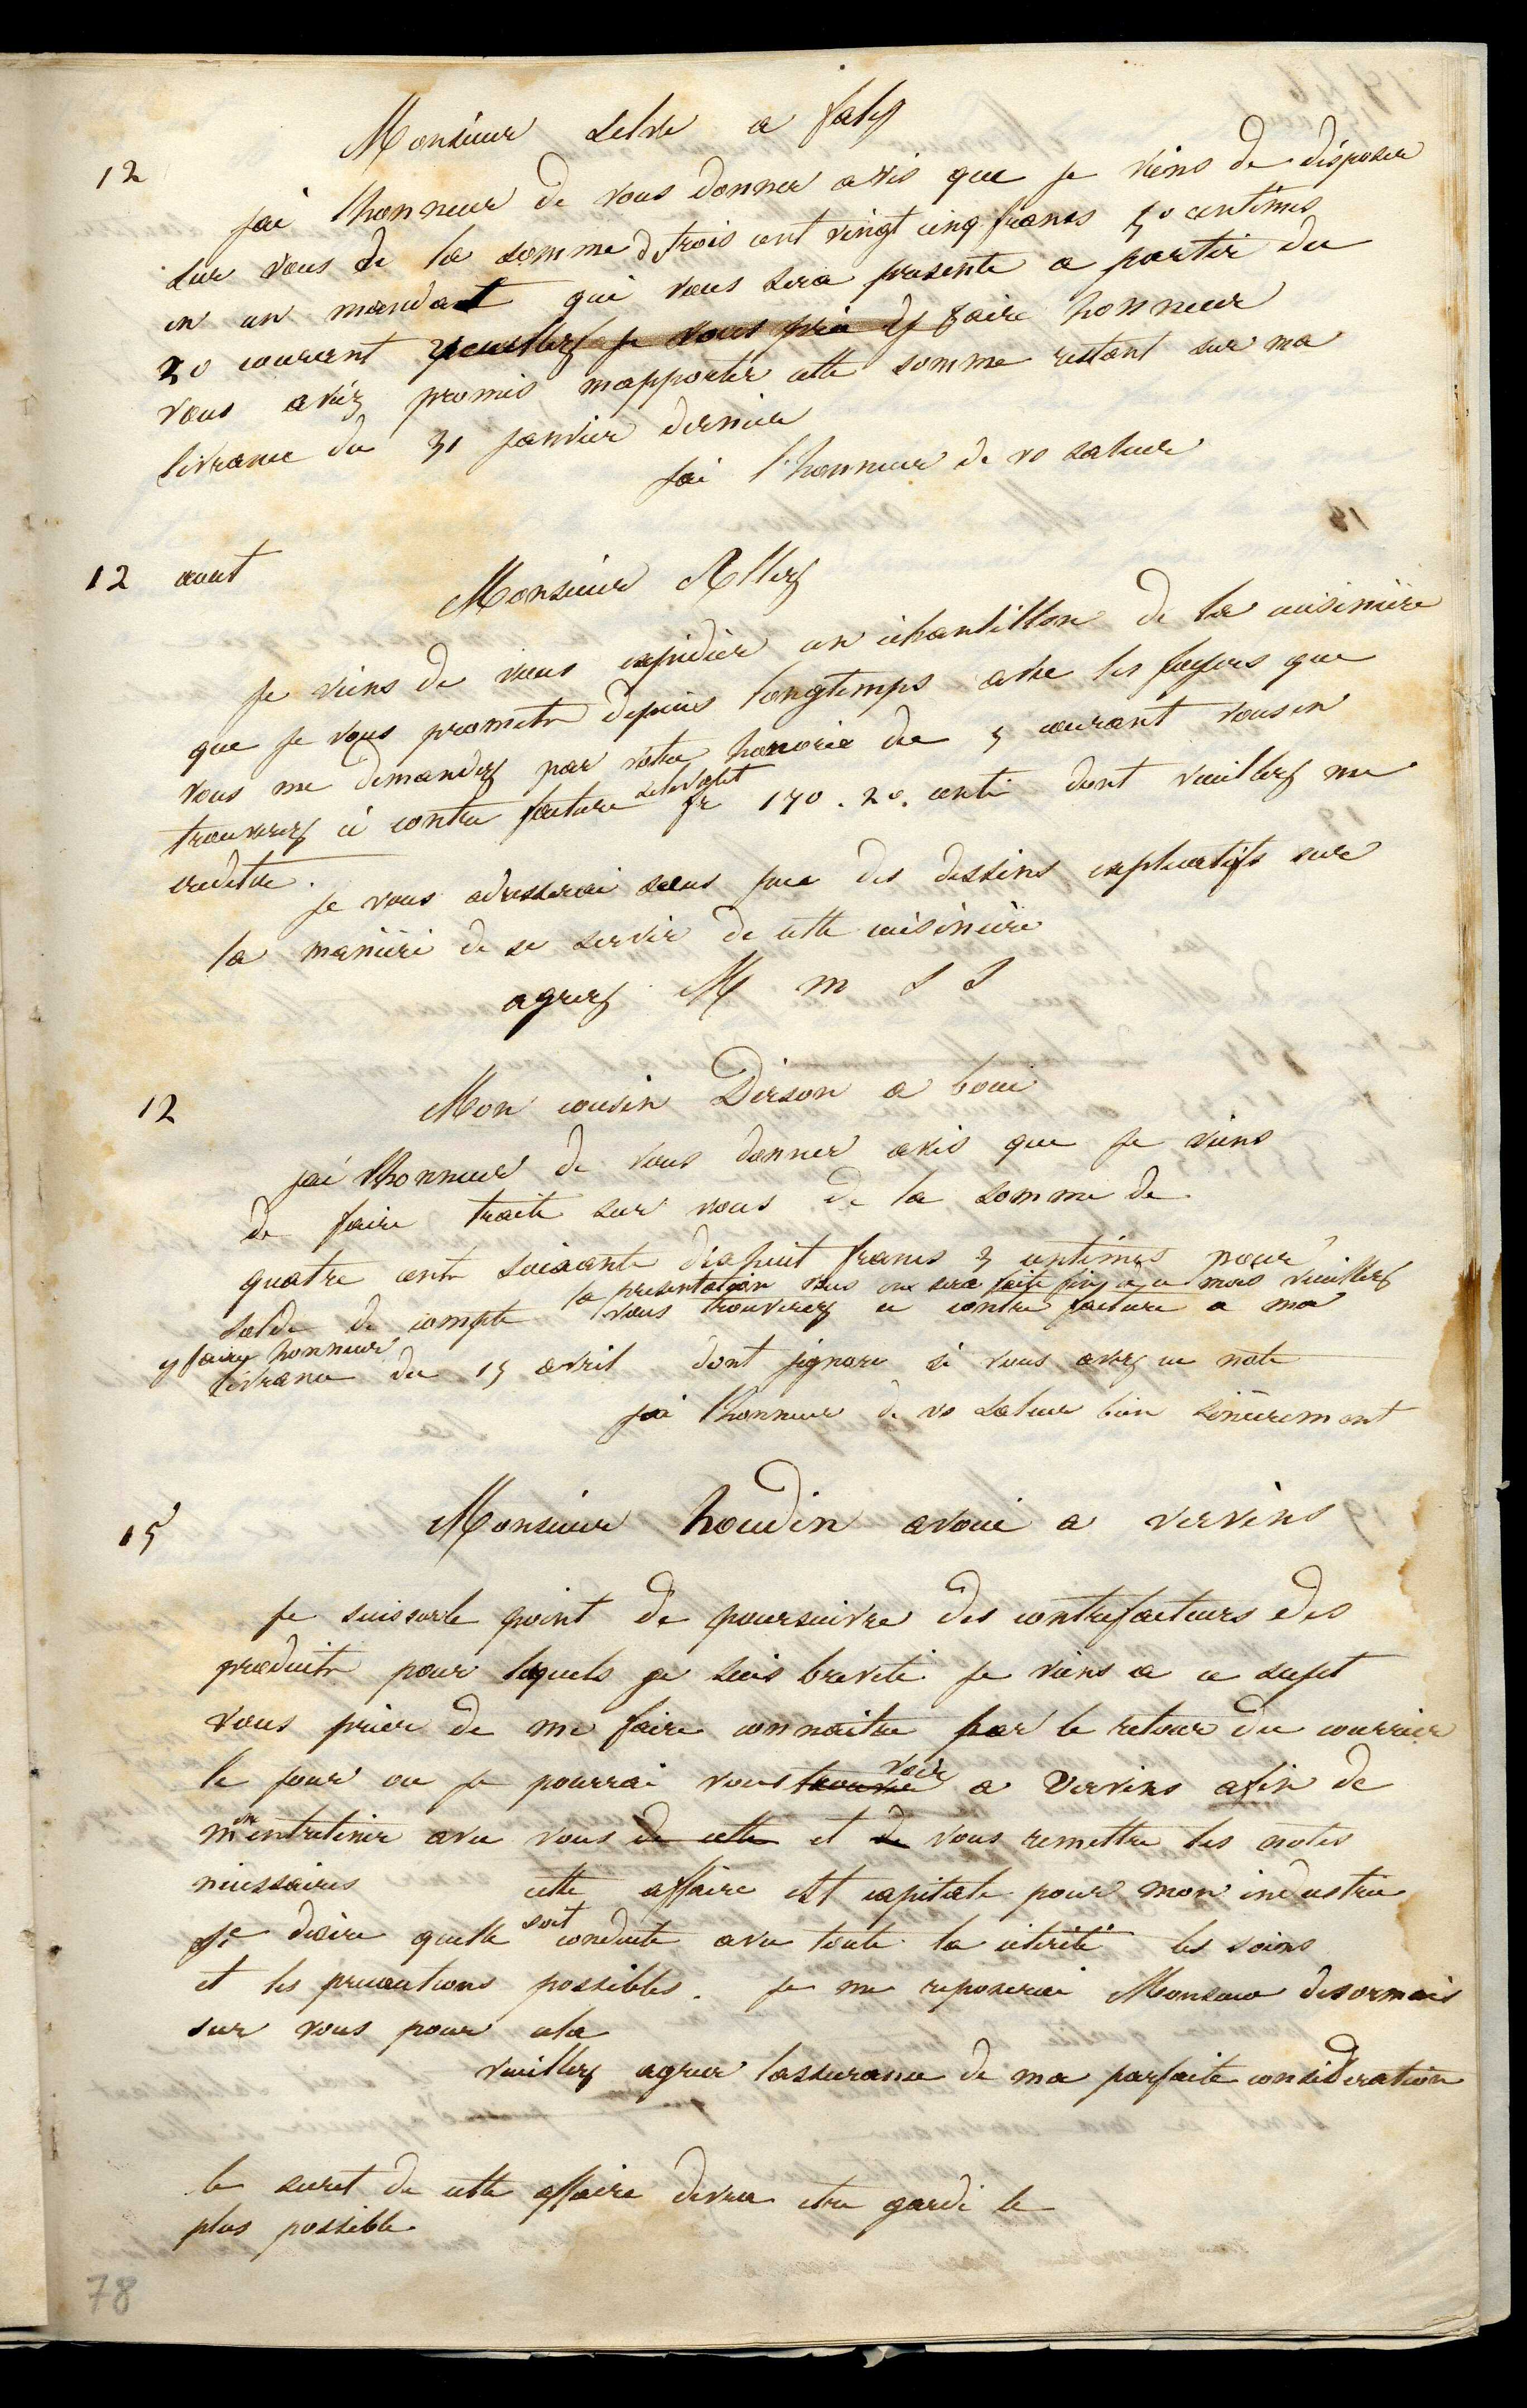 12
Monsieur Selve a
jai lhonneur de vous donner avis que je viens de disposer
sur vous de la somme de trois cent vingt cinq francs 50 centimes
en un mandat qui vous sera presente a partir du
20 courant veuillez je vous prie y faire honneur
vous aviez promis mapporter cette somme restant sur ma
livrance du 31 janvier dernier
jai l'honneur de vo saluer
12 aout
Monsieur Allez
je viens de vous expédier un échantillon de la cuisinière
que je vous prometu depuis longtemps avec les foyers que
vous me demandez par votre honorée du 5 courant vous en
trouverez ci contre facture selevant fr 170.20. centi dont veuillez me
crediter.
je vous adresserai sous peu des dessins explicatifs sur
la manière de se servir de cette cuisinière
agreez M m S S
12
Mon cousin Dirson a boué
jai lhonneur de vous donner avis que je viens
de faire traite sur vous de la somme de
quatre cent soixante dixhuit francs 3 centimes pour
la presentation vous en sera faite fin de ce mois veuillez
solde de compte vous trouverez ci contre facture a ma
y faire honneur
livrance du 15 avril dont jignore si vous avez eu note
jai lhonneur de vo saluer bien sincèrement
15
Monsieur houdin avoué a vervins
je suis sur le point de poursuivre des contrefacteurs des
produits pour lequels je suis breveté je viens a ce sujet
vous prier de me faire connaitre par le retour du courrier
le jour ou je pourrai vous trouver voir a Vervins afin de
m'en entretenir avec vous de cette et de vous remettre les notes
nécessaires cette affaire est capitale pour mon industrie
je désire quelle soit conduite avec toute la célérité les soins
et les precautions possibles. je me reposerai Monsieur desormais
sur vous pour cela
veuillez agreer lassurance de ma parfaite consideration
le secret de cette affaire devra etre gardé le
plus possible
78